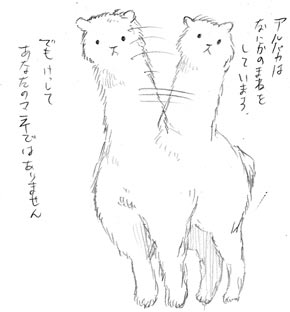 アルパカは
なにかのまねを
しています。
でもけっして
あなたのマネではありません